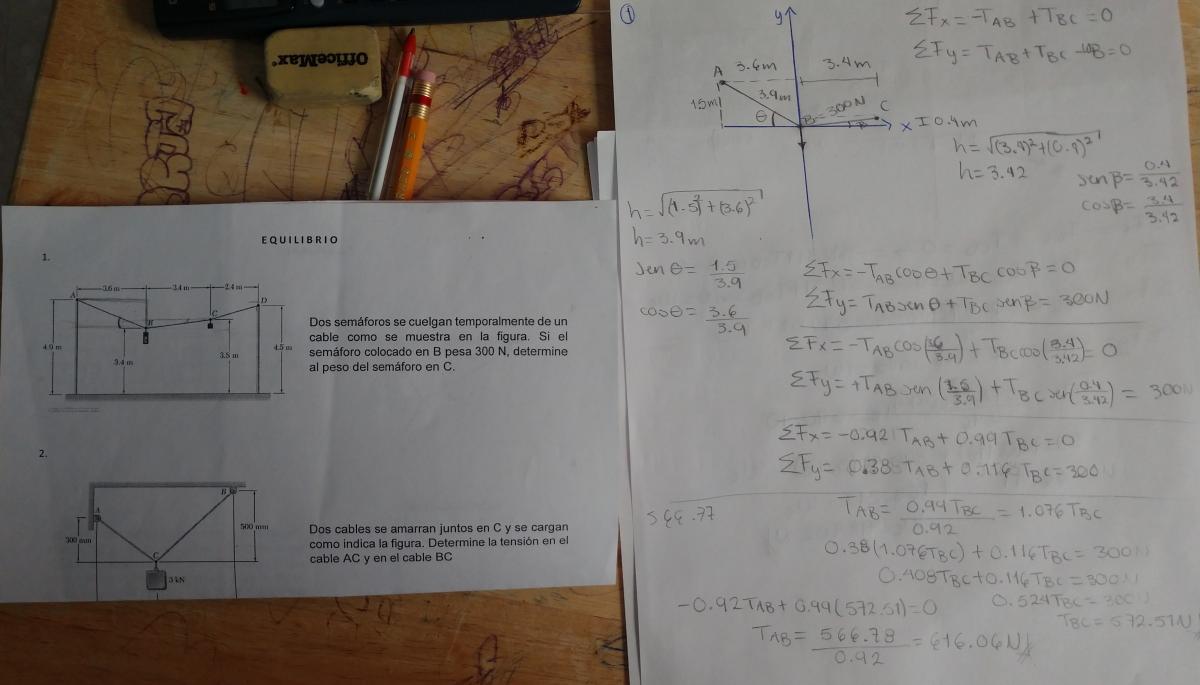 OfficeMax
EQUILIBRIO
1.
3.6 m
3.4 m
2.4 m
A
B
C
D
4.9 m
3.4 m
3.8 m
4.5 m
Dos semáforos se cuelgan temporalmente de un
cable como se muestra en la figura. Si el
semáforo colocado en B pesa 300 N, determine
al peso del semáforo en C.
2.
A
B
C
300 mm
500 mm
3 kN
Dos cables se amarran juntos en C y se cargan
como indica la figura. Determine la tensión en el
cable AC y en el cable BC
1
y
ΣFx = -TAB + TBC = 0
ΣFy = TAB + TBC = 0
A 3.6m 3.4m
1.5m
3.9m
θ
B = 300N
C
β
x
0.4m
h = √(1.5)² + (3.6)²
h = 3.9m
sen θ = 1.5/3.9
cos θ = 3.6/3.9
h = √(3.4)² + (0.4)²
h = 3.42
sen β = 0.4/3.42
cos β = 3.4/3.42
ΣFx = -TAB cos θ + TBC cos β = 0
ΣFy = TAB sen θ + TBC sen β = 300N
ΣFx = -TAB cos(3.6/3.9) + TBC cos(3.4/3.42) = 0
ΣFy = +TAB sen(1.5/3.9) + TBC sen(0.4/3.42) = 300N
ΣFx = -0.92 TAB + 0.99 TBC = 0
ΣFy = 0.38 TAB + 0.116 TBC = 300
566.77
TAB = 0.99 TBC/0.92 = 1.076 TBC
0.38(1.076TBC) + 0.116TBC = 300N
0.408TBC + 0.116TBC = 300N
0.524TBC = 300N
TBC = 572.51N
-0.92TAB + 0.99(572.51) = 0
TAB = 566.78/0.92 = 616.06N